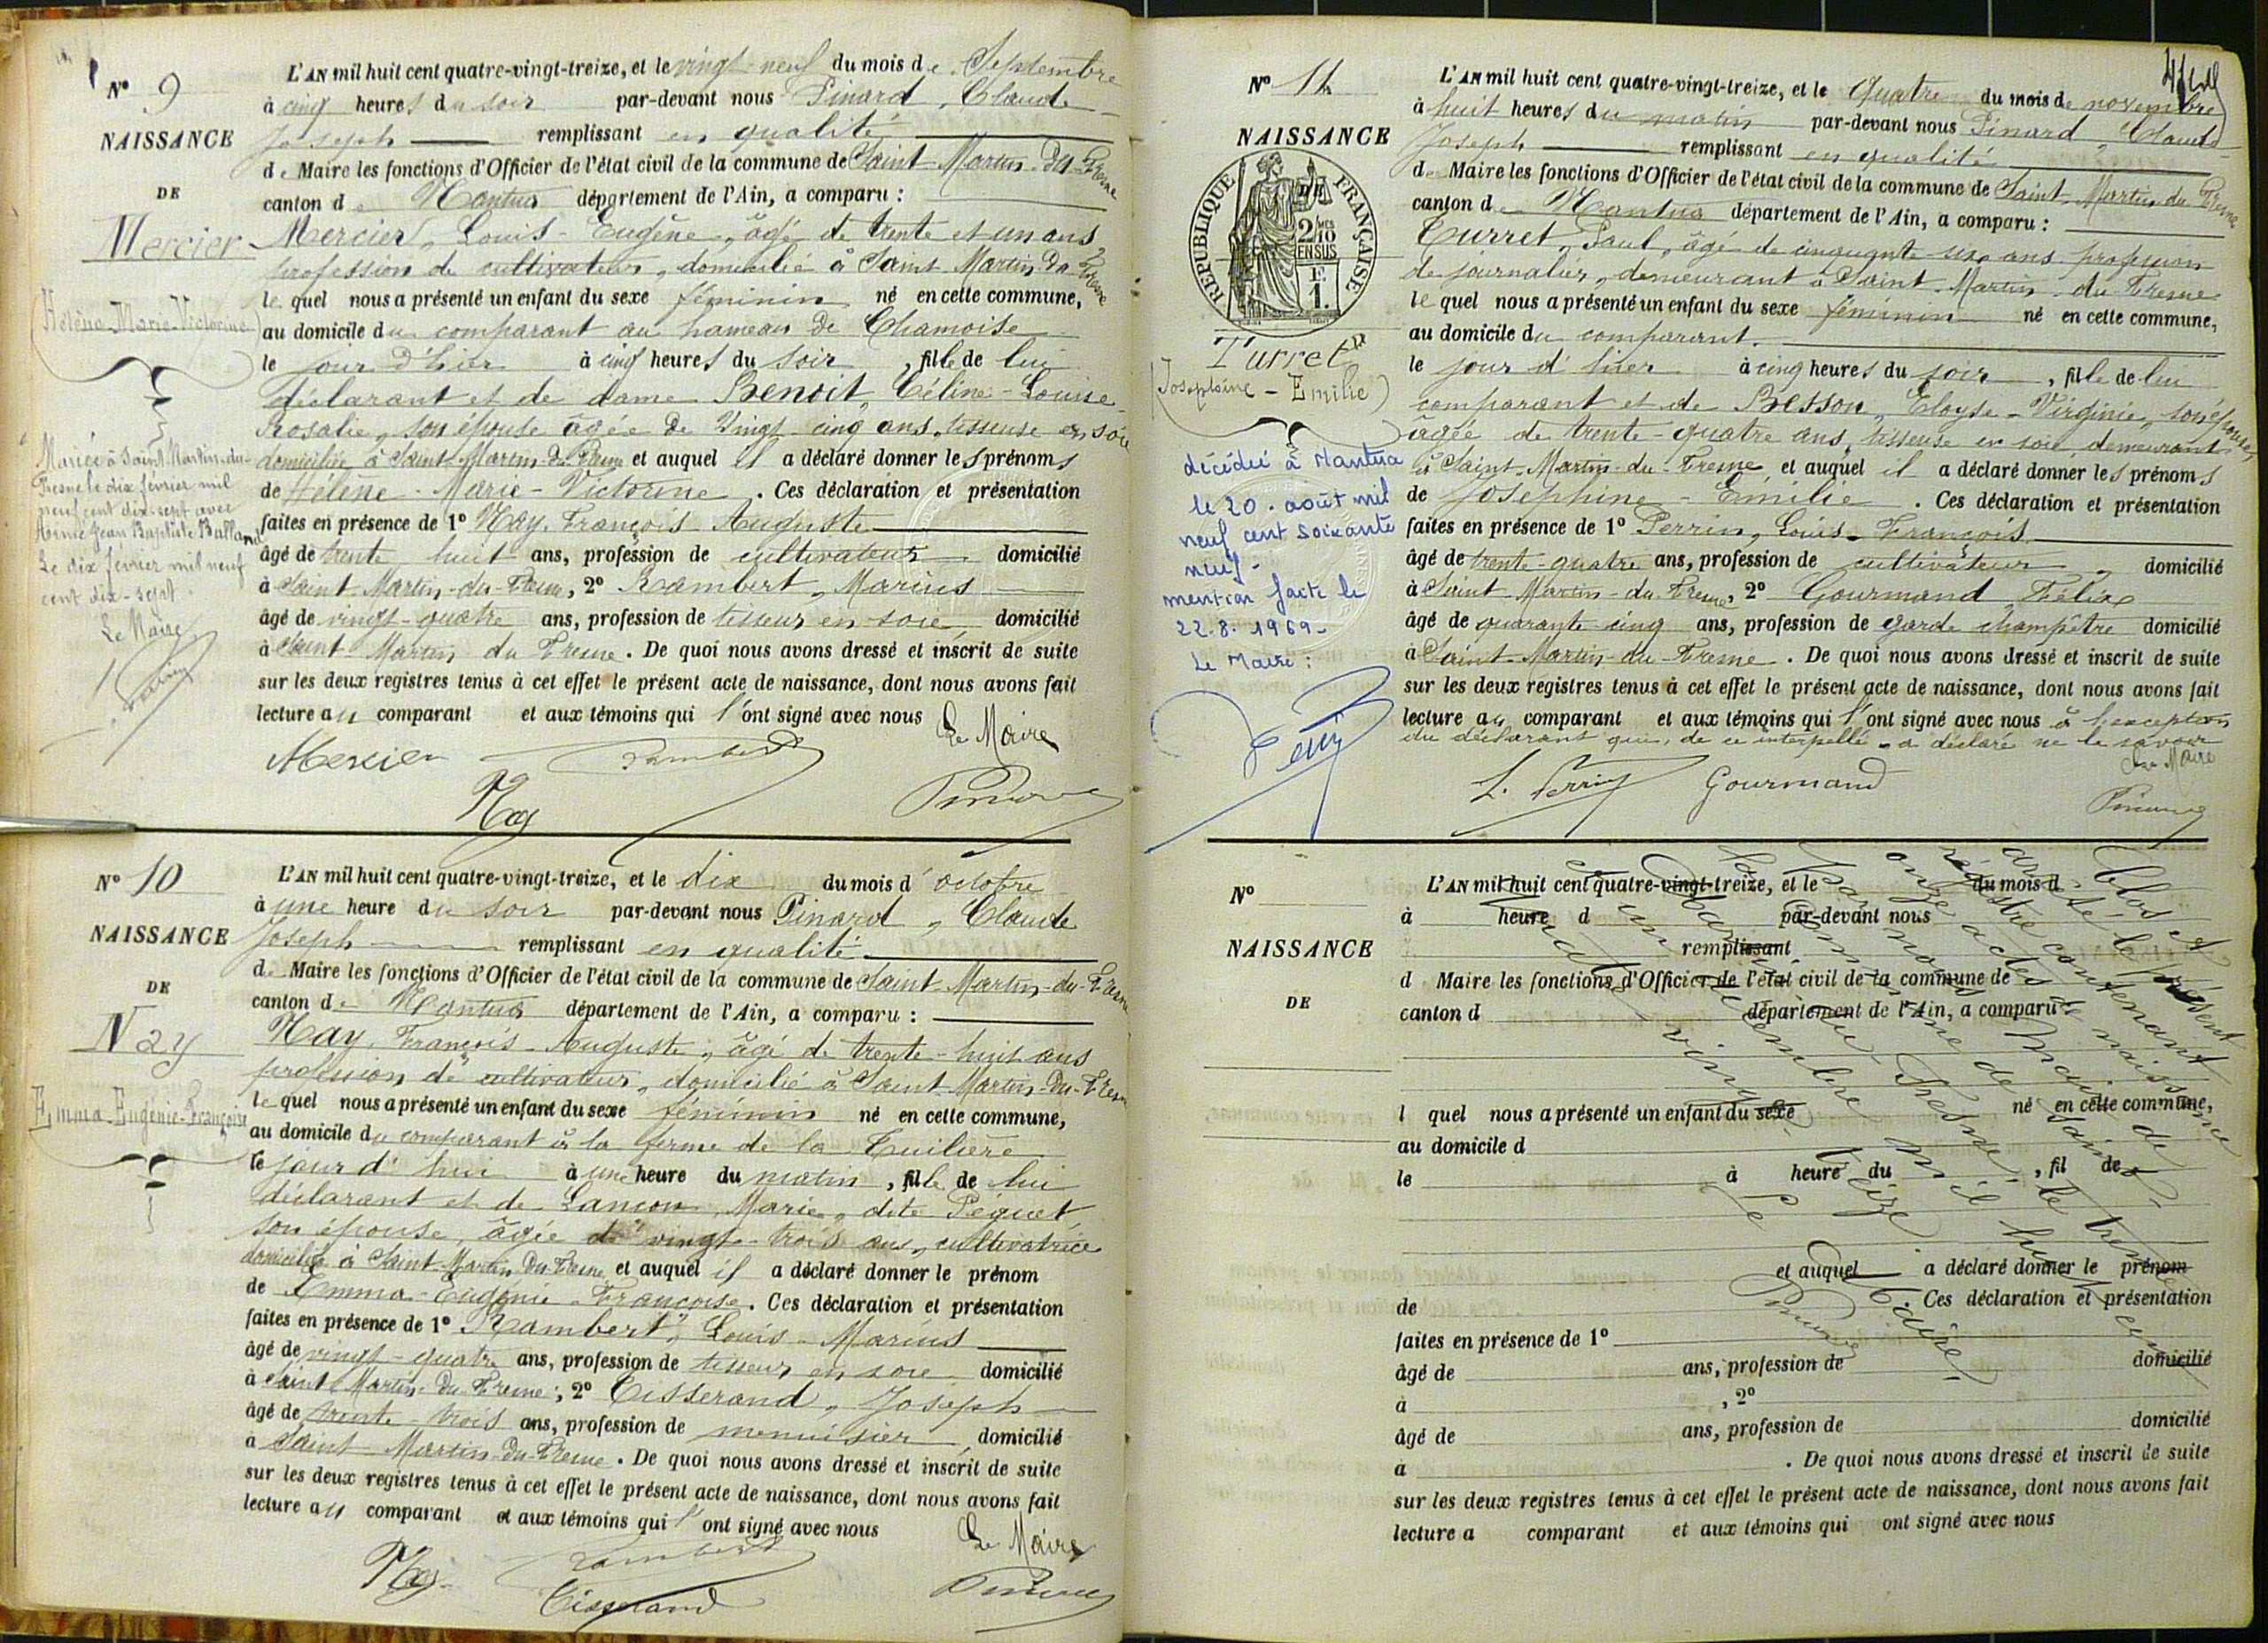 N° 9
NAISSANCE
DE
Mercier
(Hélène-Marie-Victorine)
Mariée à Saint-Martin-du-
Fresne le dix février mil
neuf cent dix-sept avec
Aimé Jean Baptiste Balland
Le dix février mil neuf
cent dix-sept.
Le Maire
L'AN mil huit cent quatre-vingt-treize, et le vingt-neuf du mois de Septembre
à cinq heures du soir par-devant nous Pinard, Claude
Joseph remplissant en qualité
de Maire les fonctions d'Officier de l'état civil de la commune de Saint-Martin-du-Fresne
canton de Nantua département de l'Ain, a comparu :
Mercier, Louis-Eugène, âgé de trente et un ans,
profession de cultivateur, domicilié à Saint Martin du Fresne
lequel nous a présenté un enfant du sexe féminin né en cette commune,
au domicile du comparant au hameau de Chamoise
le jour d'hier à cinq heures du soir, fille de lui
déclarant et de dame Benoit, Céline-Louise-
Rosalie, son épouse âgée de vingt-cinq ans, tisseuse en soie
domiciliée à Saint-Martin-du-Fresne et auquel il a déclaré donner les prénoms
de Hélène-Marie-Victorine. Ces déclaration et présentation
faites en présence de 1° Nay, François Auguste
âgé de trente huit ans, profession de cultivateur domicilié
à Saint-Martin-du-Fresne, 2° Rambert, Marius
âgé de vingt-quatre ans, profession de tisseur en soie domicilié
à Saint-Martin du Fresne. De quoi nous avons dressé et inscrit de suite
sur les deux registres tenus à cet effet le présent acte de naissance, dont nous avons fait
lecture au comparant et aux témoins qui l'ont signé avec nous Le Maire
Mercier Rambert
Nay Pinard
N° 10
NAISSANCE
DE
Nay
Emma-Eugénie-Françoise
L'AN mil huit cent quatre-vingt-treize, et le dix du mois d'octobre
à une heure du soir par-devant nous Pinard, Claude
Joseph remplissant en qualité
de Maire les fonctions d'Officier de l'état civil de la commune de Saint-Martin-du-Fresne
canton de Nantua département de l'Ain, a comparu :
Nay, François-Auguste, âgé de trente-huit ans
profession de cultivateur, domicilié à Saint-Martin-du-Fresne
lequel nous a présenté un enfant du sexe féminin né en cette commune,
au domicile du comparant à la ferme de la Tuilière
le jour d'hui à une heure du matin, fille de lui
déclarant et de Lançon, Marie, dite Péquet,
son épouse, âgée de vingt-trois ans, cultivatrice
domiciliée à Saint-Martin-du-Fresne et auquel il a déclaré donner le prénom
de Emma-Eugénie-Françoise. Ces déclaration et présentation
faites en présence de 1° Rambert, Louis-Marius
âgé de vingt-quatre ans, profession de tisseur en soie domicilié
à Saint-Martin-du-Fresne; 2° Tisserand, Joseph
âgé de trente-trois ans, profession de menuisier, domicilié
à Saint-Martin-du-Fresne. De quoi nous avons dressé et inscrit de suite
sur les deux registres tenus à cet effet le présent acte de naissance, dont nous avons fait
lecture au comparant et aux témoins qui l'ont signé avec nous
Le Maire
Nay Rambert Pinard
Tisserand
N° 11
NAISSANCE
RÉPUBLIQUE FRANÇAISE
2/10 EN SUS
Turret
(Joséphine-Emilie)
décédée à Nantua
le 20. août mil
neuf cent soixante
neuf-
mention faite le
22.8.1969-
Le Maire :
L'AN mil huit cent quatre-vingt-treize, et le quatre du mois de novembre
à huit heures du matin par-devant nous Pinard, Claude
Joseph remplissant en qualité
de Maire les fonctions d'Officier de l'état civil de la commune de Saint-Martin du Fresne
canton de Nantua département de l'Ain, a comparu :
Turret, Paul, âgé de cinquante-six ans profession
de journalier, demeurant à Saint-Martin-du-Fresne
lequel nous a présenté un enfant du sexe féminin né en cette commune,
au domicile du comparant.
le jour d'hier à cinq heures du soir, fille de lui
comparant et de Besson, Eloyse-Virginie, son épouse,
âgée de trente-quatre ans, tisseuse en soie, demeurant
à Saint-Martin-du-Fresne, et auquel il a déclaré donner les prénoms
de Joséphine-Emilie. Ces déclaration et présentation
faites en présence de 1° Perrin, Louis-François
âgé de trente-quatre ans, profession de cultivateur, domicilié
à Saint-Martin-du-Fresne, 2° Gourmand, Félix
âgé de quarante cinq ans, profession de garde champêtre domicilié
à Saint-Martin-du-Fresne. De quoi nous avons dressé et inscrit de suite
sur les deux registres tenus à cet effet le présent acte de naissance, dont nous avons fait
lecture au comparant et aux témoins qui l'ont signé avec nous à l'exception
du déclarant qui, de ce interpellé, a déclaré ne le savoir
Le Maire
L. Perrin Gourmand Pinard
N°
NAISSANCE
DE
L'AN mil huit cent quatre-vingt-treize, et le du mois d
à heure d par-devant nous
remplissant
d Maire les fonctions d'Officier de l'état civil de la commune de
canton d département de l'Ain, a comparu
l quel nous a présenté un enfant du sexe né en cette commune,
au domicile d
le à heure du , fil de
et auquel a déclaré donner le prénom
de Ces déclaration et présentation
faites en présence de 1°
âgé de ans, profession de domicilié
à , 2°
âgé de ans, profession de domicilié
à . De quoi nous avons dressé et inscrit de suite
sur les deux registres tenus à cet effet le présent acte de naissance, dont nous avons fait
lecture a comparant et aux témoins qui ont signé avec nous
Clos et
arrêté le présent
registre contenant
onze actes de naissance
par nous Maire de
la commune de Saint-
Martin du Fresne, le trente
un décembre mil huit cent
quatre vingt treize
Le Maire,
Pinard